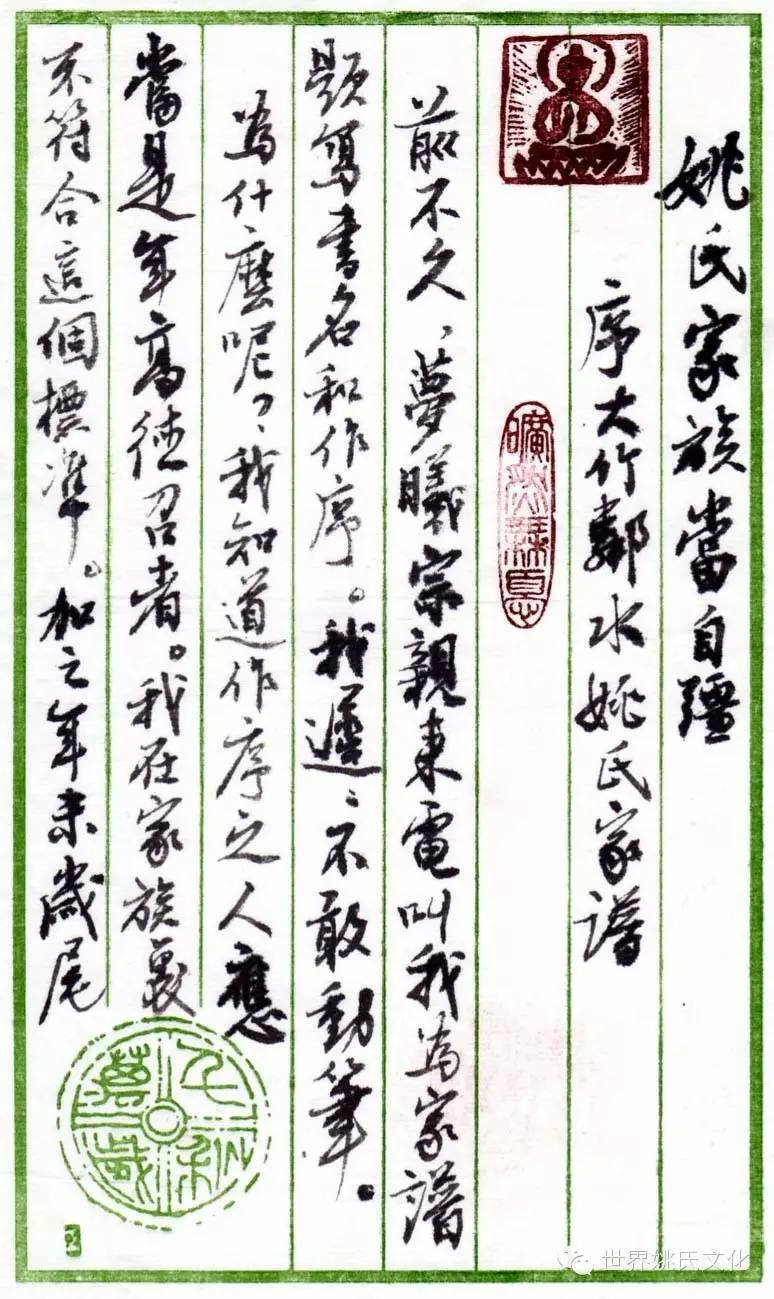 姚氏家族當自彊
序大竹鄰水姚氏家譜
前不久、夢曦宗親来電叫我為家譜
題寫書名和作序。我遲、不敢動筆。
為什麽呢？、我知道作序之人應
當是年高德召者。我在家族裏
不符合這個標準。加之年末歲尾
世界姚氏文化